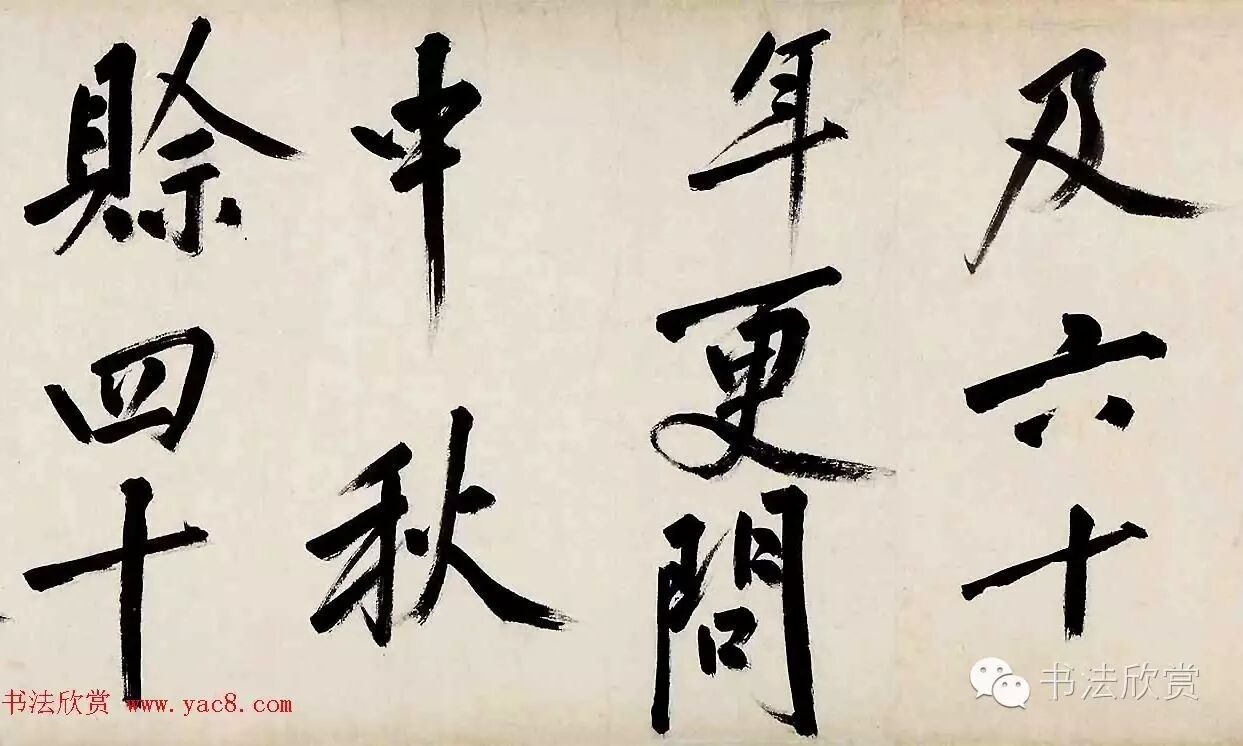 及六十
年更問
中秋
賒四十
书法欣赏 www.yac8.com
书法欣赏